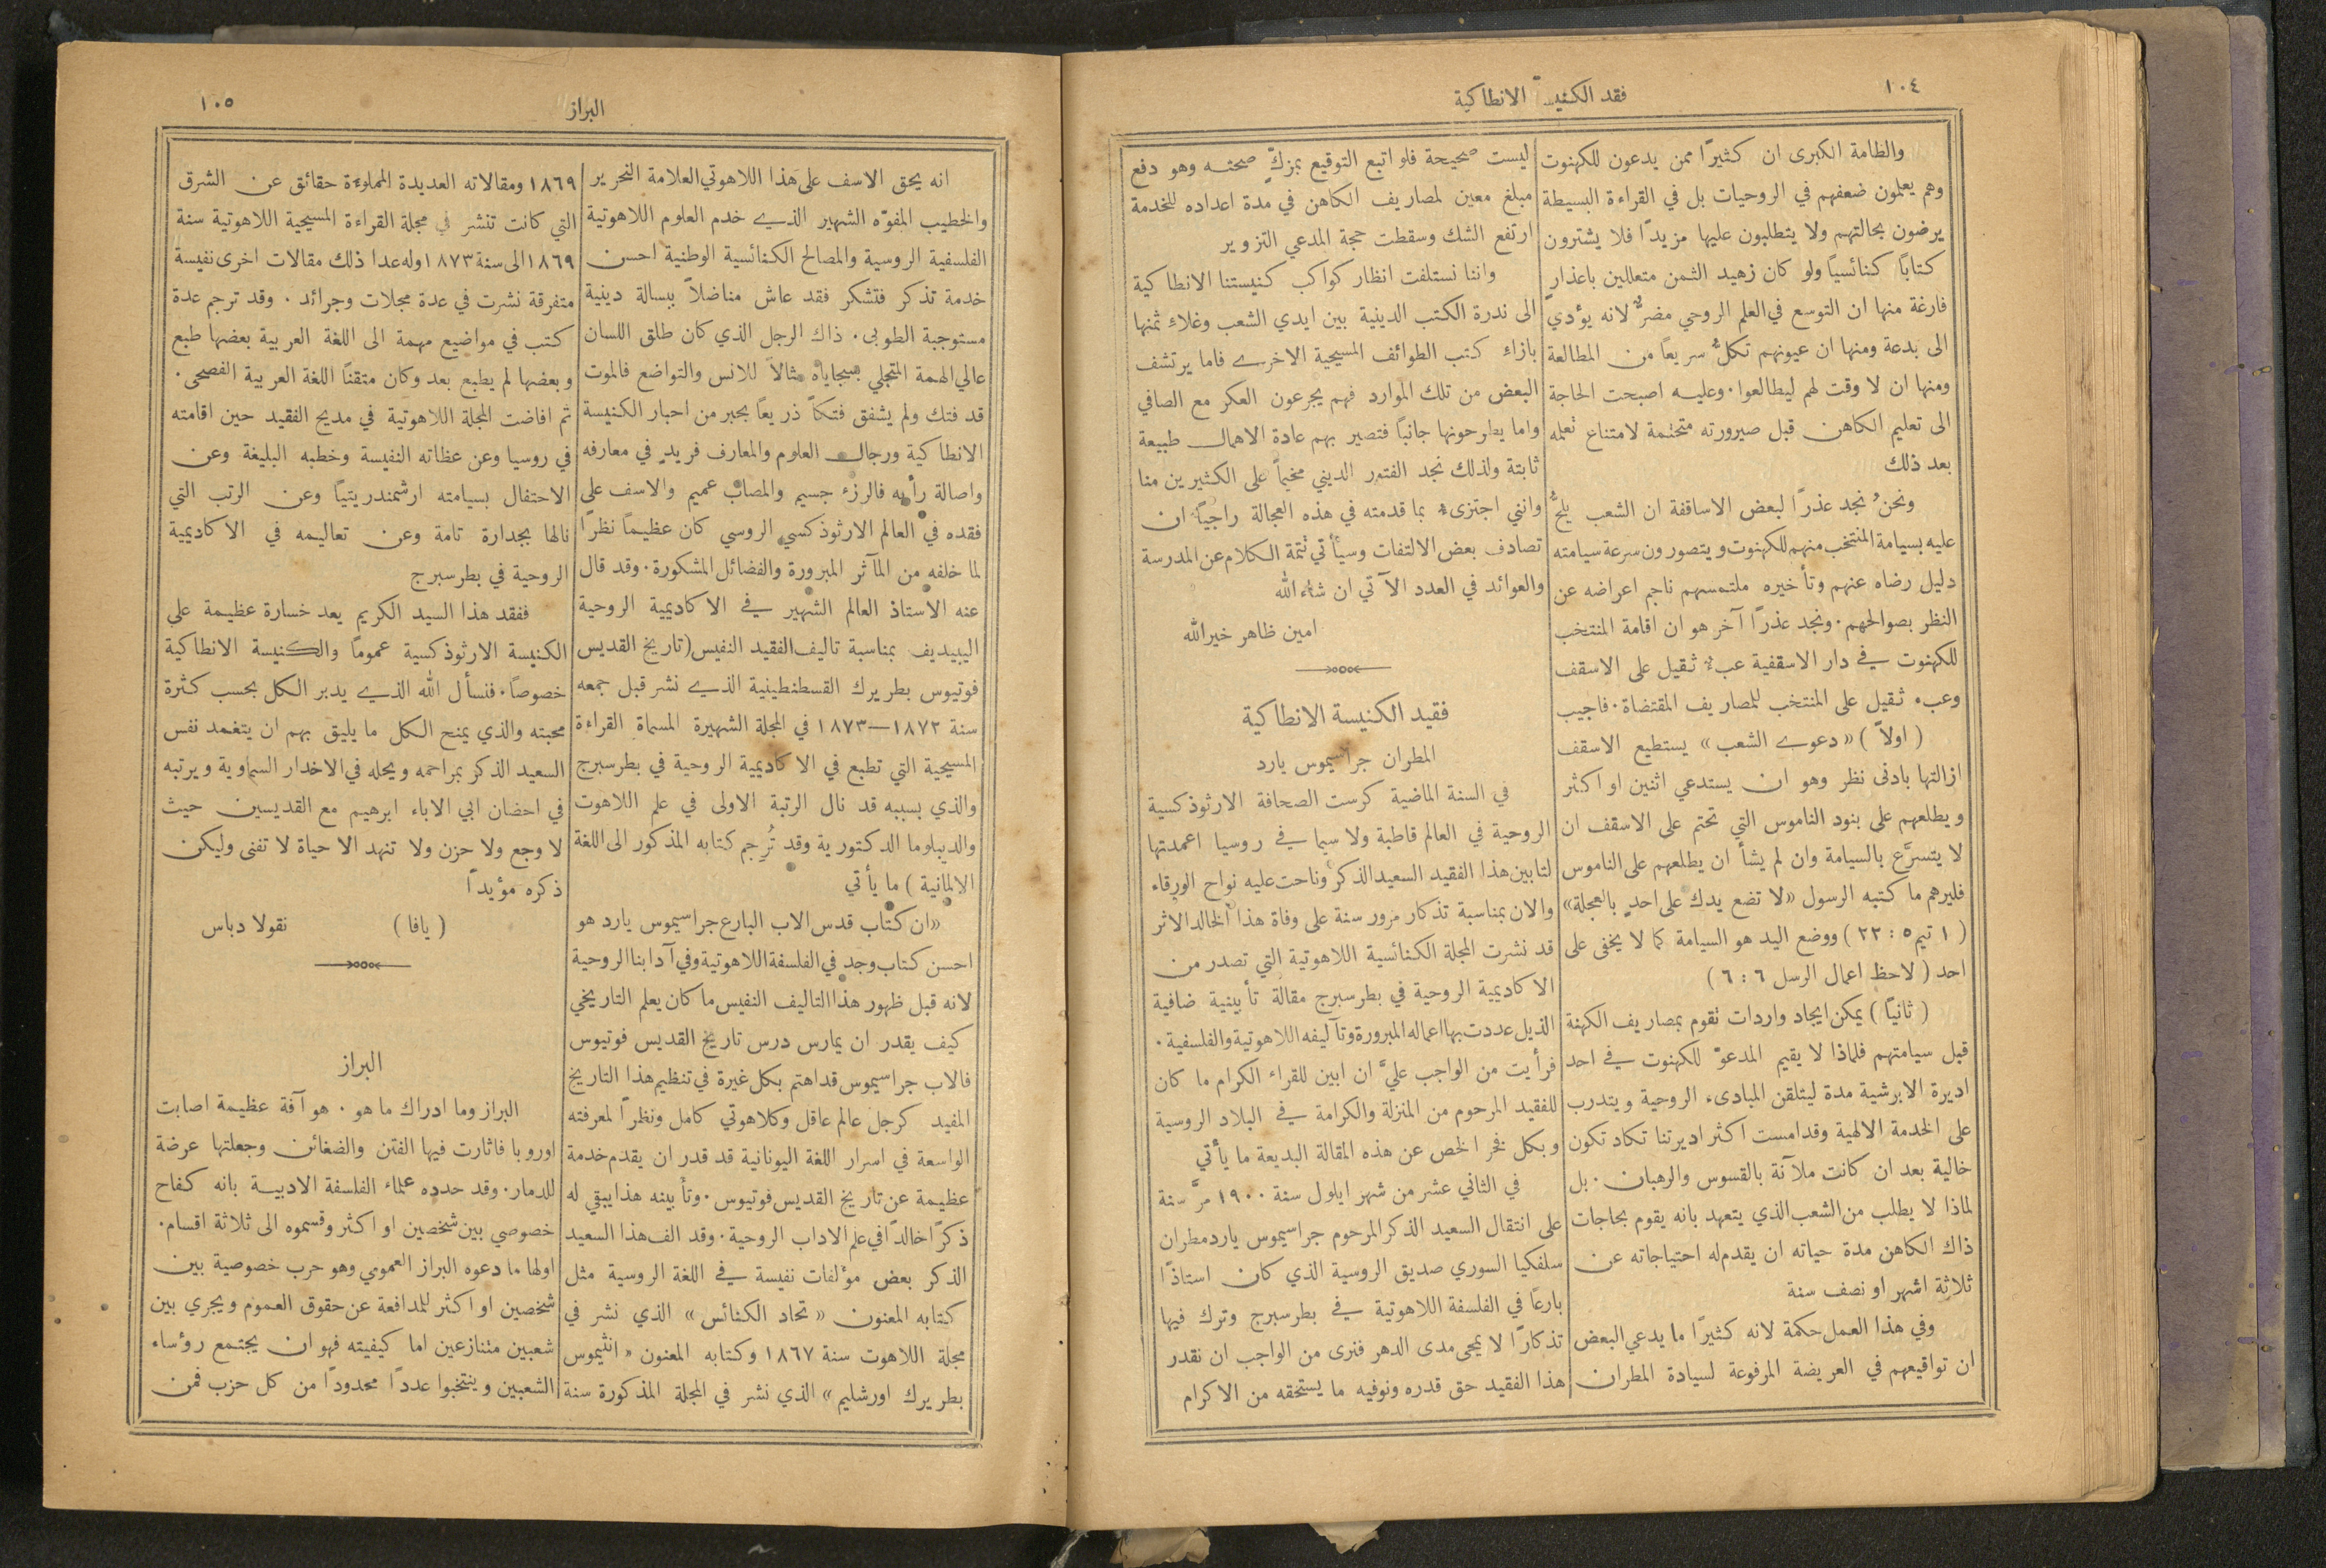 ١٠٤
فقد الكنيسة الانطاكية
والطامة الكبرى ان كثيرًا ممن يدعون للكهنوت
وهم يعلمون ضعفهم في الروحيات بل في القراءة البسيطة
يرضون بحالتهم ولا يتطلبون عليها مزيدًا فلا يشترون
كتابًا كنائسيًا ولو كان زهيد الثمن متعللين باعذارٍ
فارغة منها ان التوسع في العلم الروحي مضرٌّ لانه يؤدي
الى بدعة ومنها ان عيونهم تكلُّ سريعًا من المطالعة
ومنها ان لا وقت لهم ليطالعوا. وعليه اصبحت الحاجة
الى تعليم الكاهن قبل صيرورته متحتمة لامتناع تعلمه
بعد ذلك
ونحن نجد عذرًا لبعض الاساقفة ان الشعب يلحُّ
عليه بسيامة المنتخب منهم للكهنوت ويتصورون سرعة سيامته
دليل رضاه عنهم وتأخيره ملتمسهم ناجم اعراضه عن
النظر بصوالحهم. ونجد عذرًا آخر هو ان اقامة المنتخب
للكهنوت في دار الاسقفية عبء ثقيل على الاسقف
وعبء ثقيل على المنتخب للمصاريف المقتضاة. فاجيب
( اولاً ) «دعوى الشعب» يستطيع الاسقف
ازالتها بادنى نظر وهو ان يستدعي اثنين او اكثر
ويطلعهم على بنود الناموس التي تحتم على الاسقف ان
لا يتسرَّع بالسيامة وان لم يشأ ان يطلعهم على الناموس
فليرهم ما كتبه الرسول «لا تضع يدك على احدٍ بالعجلة»
( ١ تيم ٥ : ٢٢ ) ووضع اليد هو السيامة كما لا يخفى على
احد ( لاحظ اعمال الرسل ٦ : ٦ )
( ثانيًا ) يمكن ايجاد واردات تقوم بمصاريف الكهنة
قبل سيامتهم فلماذا لا يقيم المدعوّ للكهنوت في احد
اديرة الابرشية مدة ليتلقن المبادىء الروحية ويتدرب
على الخدمة الالهية وقد امست اكثر اديرتنا تكاد تكون
خالية بعد ان كانت ملآنة بالقسوس والرهبان. بل
لماذا لا يطلب من الشعب الذي يتعهد بانه يقوم بحاجات
ذاك الكاهن مدة حياته ان يقدم له احتياجاته عن
ثلاثة اشهر او نصف سنة
وفي هذا العمل حكمة لانه كثيرًا ما يدعي البعض
ان تواقيعهم في العريضة المرفوعة لسيادة المطران
ليست صحيحة فلو اتبع التوقيع بمزكٍّ صحته وهو دفع
مبلغ معين لمصاريف الكاهن في مدة اعداده للخدمة
ارتفع الشك وسقطت حجة المدعي التزوير
واننا نستلفت انظار كواكب كنيستنا الانطاكية
الى ندرة الكتب الدينية بين ايدي الشعب وغلاء ثمنها
بازاء كتب الطوائف المسيحية الاخرى فاما يرتشف
البعض من تلك الموارد فهم يجرعون العكر مع الصافي
واما يطرحونها جانبًا فتصير بهم عادة الاهمال طبيعة
ثابتة ولذلك نجد الفتور الديني مخيمًا على الكثيرين منا
وانني اجتزىء بما قدمته في هذه العجالة راجيًا ان
تصادف بعض الالتفات وسيأتي تتمة الكلام عن المدرسة
والعوائد في العدد الآتي ان شاء الله
امين ظاهر خيرالله
فقيد الكنيسة الانطاكية
المطران جراسيموس يارد
في السنة الماضية كرست الصحافة الارثوذكسية
الروحية في العالم قاطبة ولا سيما في روسيا اعمدتها
لتابين هذا الفقيد السعيد الذكر وناحت عليه نواح الورقاء
والان بمناسبة تذكار مرور سنة على وفاة هذا الخالد الاثر
قد نشرت المجلة الكنائسية اللاهوتية التي تصدر من
الاكاديمية الروحية في بطرسبرج مقالة تأبينية ضافية
الذيل عددت بها اعماله المبرورة وتآليفه اللاهوتية والفلسفية.
فرأيت من الواجب عليَّ ان ابين للقراء الكرام ما كان
للفقيد المرحوم من المنزلة والكرامة في البلاد الروسية
وبكل فخر الخص عن هذه المقالة البديعة ما يأتي
في الثاني عشر من شهر ايلول سنة ١٩٠٠ مرَّ سنة
على انتقال السعيد الذكر المرحوم جراسيموس يارد مطران
سلفكيا السوري صديق الروسية الذي كان استاذًا
بارعًا في الفلسفة اللاهوتية في بطرسبرج وترك فيها
تذكارًا لا يمحى مدى الدهر فنرى من الواجب ان نقدر
هذا الفقيد حق قدره ونوفيه ما يستحقه من الاكرام
البراز
١٠٥
انه يحق الاسف على هذا اللاهوتي العلامة النحرير
والخطيب المفوّه الشهير الذي خدم العلوم اللاهوتية
الفلسفية الروسية والمصالح الكنائسية الوطنية احسن
خدمة تذكر فتشكر فقد عاش مناضلاً ببسالة دينية
مستوجبة الطوبى. ذاك الرجل الذي كان طلق اللسان
عالي الهمة المتجلي بسجاياه مثالاً للانس والتواضع فالموت
قد فتك ولم يشفق فتكاً ذريعًا بحبر من احبار الكنيسة
الانطاكية ورجال العلوم والمعارف فريدٍ في معارفه
واصالة رأيه فالرزء جسيم والمصاب عميم والاسف على
فقده في العالم الارثوذكسي الروسي كان عظيمًا نظرًا
لما خلفه من المآثر المبرورة والفضائل المشكورة. وقد قال
عنه الاستاذ العالم الشهير في الاكاديمية الروحية
اليبيديف بمناسبة تاليف الفقيد النفيس (تاريخ القديس
فوتيوس بطريرك القسطنطينية الذي نشر قبل جمعه
سنة ١٨٧٢—١٨٧٣ في المجلة الشهيرة المسماة القراءة
المسيحية التي تطبع في الاكاديمية الروحية في بطرسبرج
والذي بسببه قد نال الرتبة الاولى في علم اللاهوت
والديبلوما الدكتورية وقد تُرجم كتابه المذكور الى اللغة
الالمانية ) ما يأتي
«ان كتاب قدس الاب البارع جراسيموس يارد هو
احسن كتاب وجد في الفلسفة اللاهوتية وفي آدابنا الروحية
لانه قبل ظهور هذا التاليف النفيس ما كان يعلم التاريخي
كيف يقدر ان يمارس درس تاريخ القديس فوتيوس
فالاب جراسيموس قد اهتم بكل غيرة في تنظيم هذا التاريخ
المفيد كرجل عالم عاقل وكلاهوتي كامل ونظرًا لمعرفته
الواسعة في اسرار اللغة اليونانية قد قدر ان يقدم خدمة
عظيمة عن تاريخ القديس فوتيوس. وتأبينه هذا يبقي له
ذكرًا خالدًا في علم الاداب الروحية. وقد الف هذا السعيد
الذكر بعض مؤلفات نفيسة في اللغة الروسية مثل
كتابه المعنون «تحاد الكنائس» الذي نشر في
مجلة اللاهوت سنة ١٨٦٧ وكتابه المعنون «انثيموس
بطريرك اورشليم» الذي نشر في المجلة المذكورة سنة
١٨٦٩ ومقالاته العديدة المملوءة حقائق عن الشرق
التي كانت تنشر في مجلة القراءة المسيحية اللاهوتية سنة
١٨٦٩ الى سنة ١٨٧٣ وله عدا ذلك مقالات اخرى نفيسة
متفرقة نشرت في عدة مجلات وجرائد. وقد ترجم عدة
كتب في مواضيع مهمة الى اللغة العربية بعضها طبع
وبعضها لم يطبع بعد وكان متقنًا اللغة العربية الفصحى.
ثم افاضت المجلة اللاهوتية في مديح الفقيد حين اقامته
في روسيا وعن عظاته النفيسة وخطبه البليغة وعن
الاحتفال بسيامته ارشمندريتيًا وعن الرتب التي
نالها بجدارة تامة وعن تعاليمه في الاكاديمية
الروحية في بطرسبرج
ففقد هذا السيد الكريم يعد خسارة عظيمة على
الكنيسة الارثوذكسية عمومًا والكنيسة الانطاكية
خصوصًا. فنسأل الله الذي يدبر الكل بحسب كثرة
محبته والذي يمنح الكل ما يليق بهم ان يتغمد نفس
السعيد الذكر بمراحمه ويحله في الاخدار السماوية ويرتبه
في احضان ابي الاباء ابرهيم مع القديسين حيث
لا وجع ولا حزن ولا تنهد الا حياة لا تفنى وليكن
ذكره مؤيدًا
( يافا ) نقولا دباس
البراز
البراز وما ادراك ما هو. هو آفة عظيمة اصابت
اوروبا فاثارت فيها الفتن والضغائن وجعلتها عرضة
للدمار. وقد حدده علماء الفلسفة الادبية بانه كفاح
خصوصي بين شخصين او اكثر وقسموه الى ثلاثة اقسام.
اولها ما دعوه البراز العمومي وهو حرب خصوصية بين
شخصين او اكثر للمدافعة عن حقوق العموم ويجري بين
شعبين متنازعين اما كيفيته فهو ان يجتمع رؤساء
الشعبين وينتخبوا عددًا محدودًا من كل حزب فمن